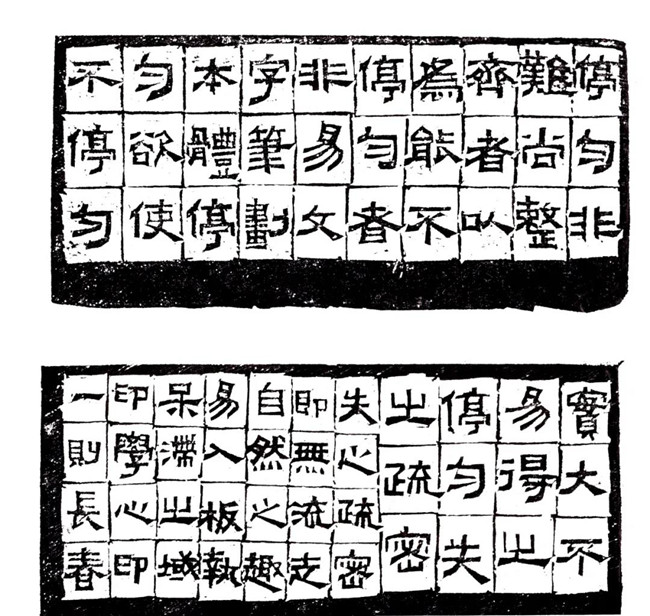 停勻非
難尚整
齊者以
爲能不
停勻者
非易文
字筆劃
本體停
勻欲使
不停勻
實大不
易得之
停勻失
之疏密
失心疏密
即無流走
自然之趣
易入板執
呆滯之域
印學心印
一則長春